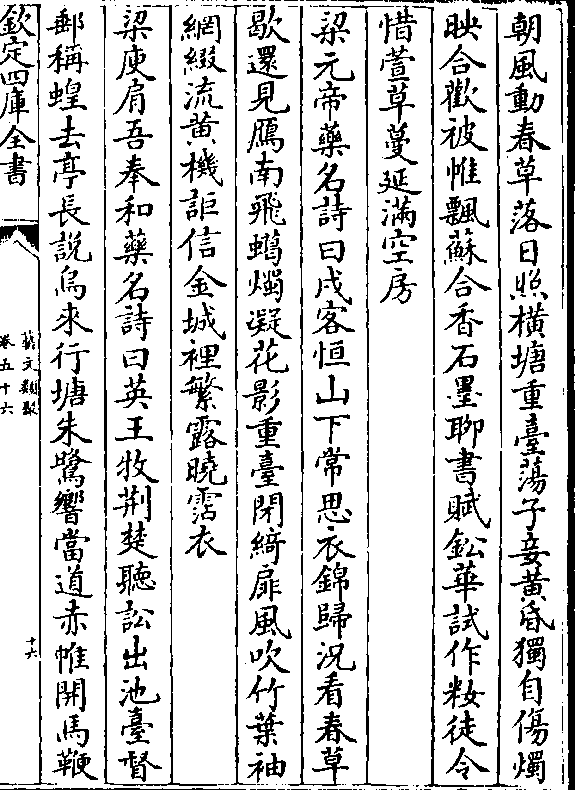 朝風動春草落日照橫塘重臺蕩子妾黄昏獨自傷燭
映合歡被帷飄蘇合香石墨聊書賦鈆華試作粧徒令
惜萱草蔓延滿空房
梁元帝藥名詩曰戍客恒山下常思衣錦歸況看春草
歇還見鴈南飛蠟燭凝花影重臺閉綺扉風吹竹葉袖
網綴流黄機詎信金城裡繁露曉霑衣
梁庾肩吾奉和藥名詩曰英王牧荆楚聽訟出池臺督
郵稱蝗去亭長說烏來行塘朱鷺響當道赤帷開馬鞭
欽定四庫全書
藝文類聚
卷五十六
十六